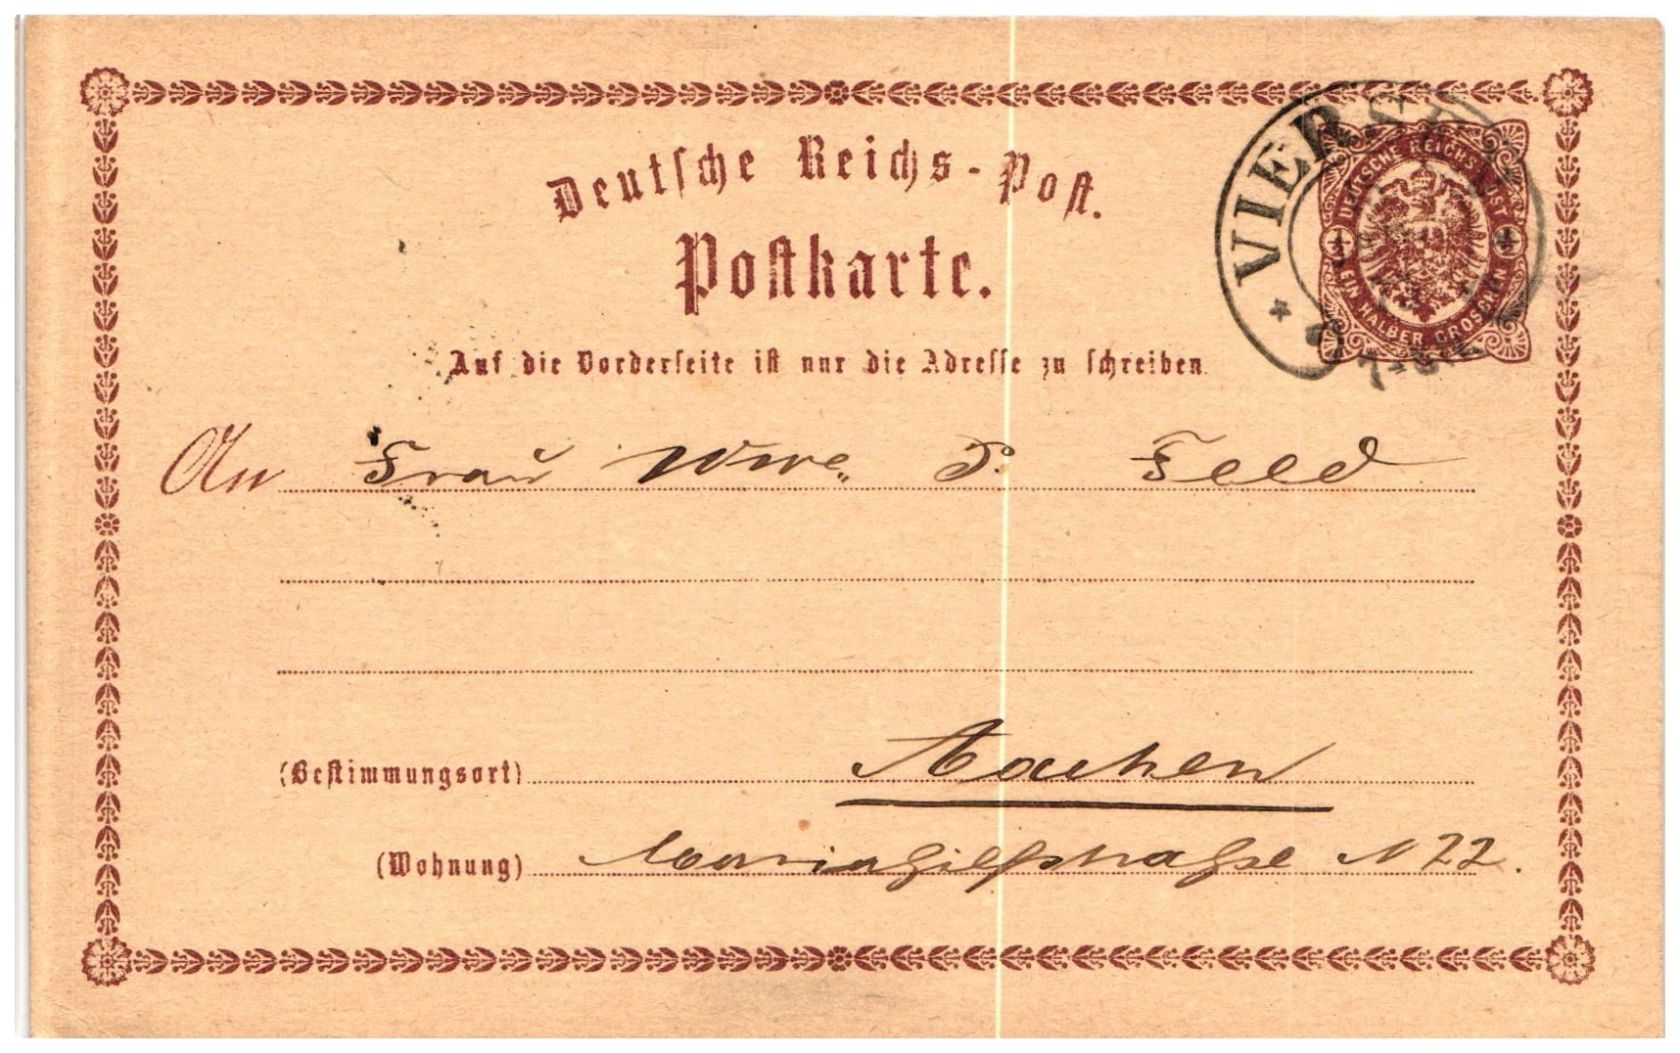 Deutsche Reichs-Post.
Postkarte.
VIERSE
DEUTSCHE REICHS POST
EIN HALBER GROSCHEN
Auf die Vorderseite ist nur die Adresse zu schreiben
An Frau Wwe. P. Feld
(Bestimmungsort) Aachen
(Wohnung) Mariahilfstraße N 22.